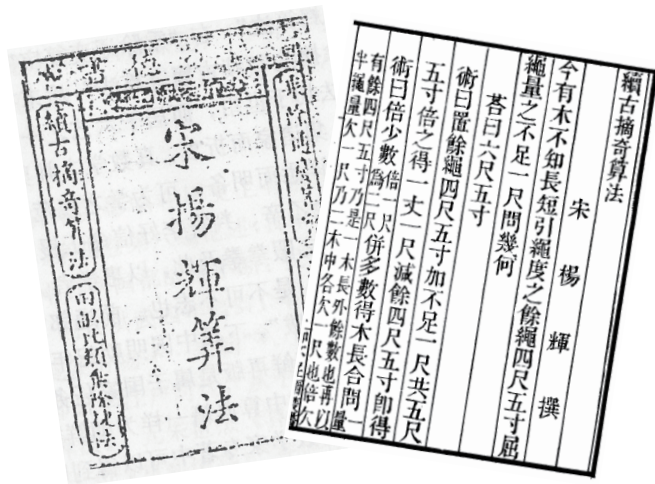 宋揚輝算法
續古摘奇算法
田畝比類乘除捷法
續古摘奇算法
宋楊輝撰
今有木不知長短引繩度之餘繩四尺五寸屈
繩量之不足一尺問幾何
荅曰六尺五寸
術曰置餘繩四尺五寸加不足一尺共五尺
五寸倍之得一丈一尺減餘四尺五寸卽得
術曰倍少數倍一尺爲二尺併多數得木長合問一量
有餘四尺五寸乃是一木長外餘數也再以
半繩量欠一尺乃二木中各欠一尺也倍欠